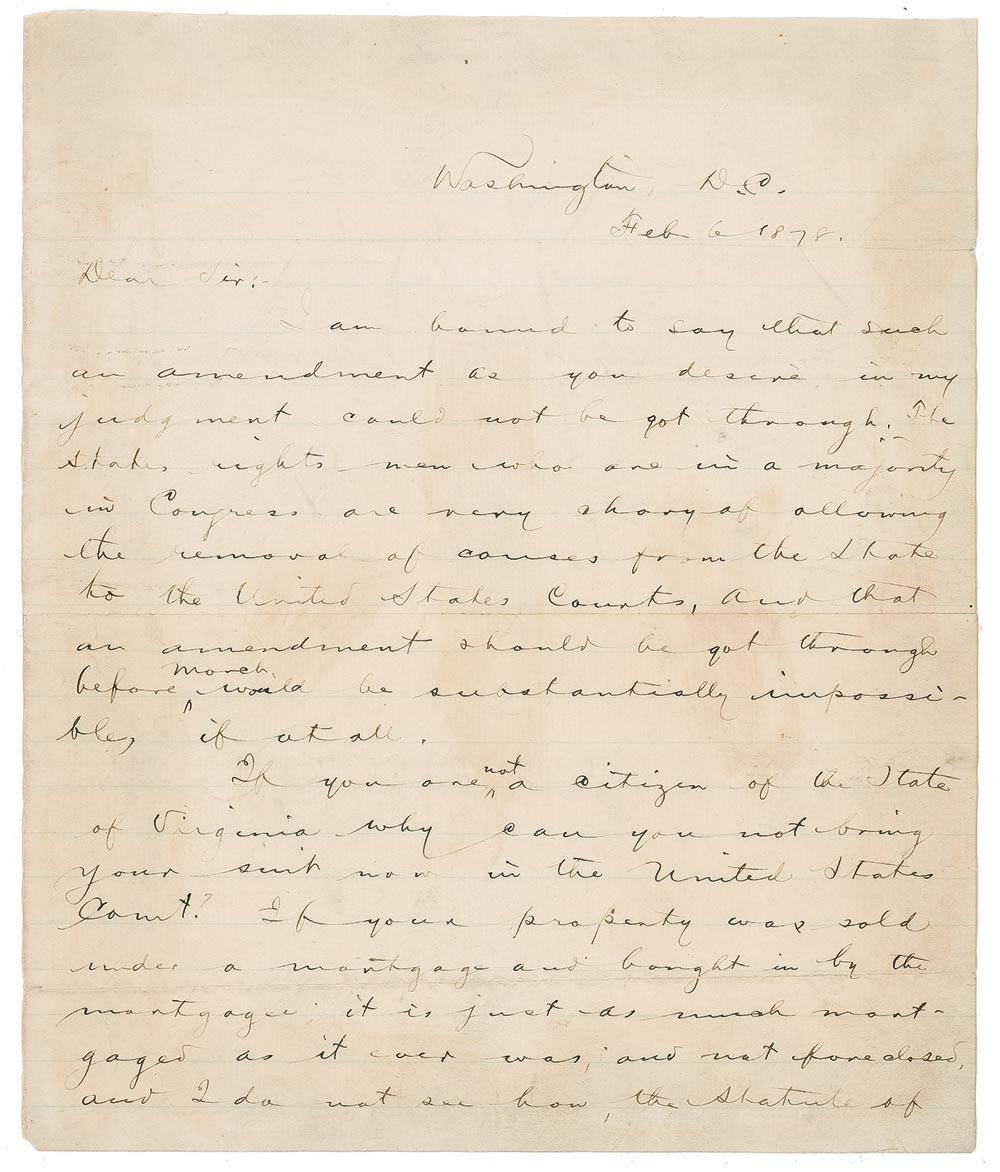 Washington, D.C.
Feb 6 1878.
Dear Sir:-
I am bound to say that such
an amendment as you desire, in my
judgment could not be got through. The
States rights men who are in a majority
in Congress are very chary of allowing
the removal of causes from the State
to the United States Courts, and that
an amendment should be got through
March
before would be substantially impossi-
ble, if at all.
not
If you are a citizen of the State
of Virginia why can you not bring
your suit now in the United States
Court? If your property was sold
under a mortgage and bought in by the
mortgagee it is just as much mort-
gaged as it ever was, and not foreclosed,
and I do not see how, the Statute of